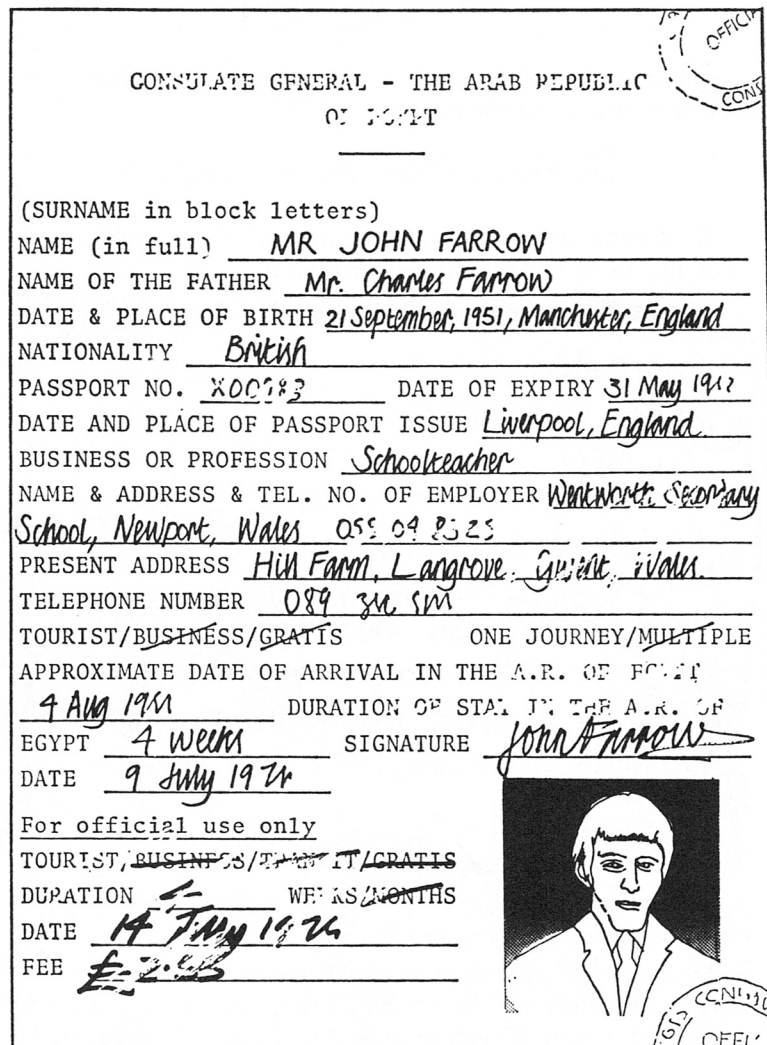 OFFICIA
CONS
CONSULATE GENERAL - THE ARAB REPUBLIC
OF EGYPT
(SURNAME in block letters)
NAME (in full) MR JOHN FARROW
NAME OF THE FATHER Mr. Charles Farrow
DATE & PLACE OF BIRTH 21 September, 1951, Manchester, England
NATIONALITY British
PASSPORT NO. DATE OF EXPIRY 31 May
DATE AND PLACE OF PASSPORT ISSUE Liverpool, England.
BUSINESS OR PROFESSION Schoolteacher
NAME & ADDRESS & TEL. NO. OF EMPLOYER Wentworth Secondary
School, Newport, Wales
PRESENT ADDRESS Hill Farm, Langrove, Gwent, Wales.
TELEPHONE NUMBER 089
TOURIST/BUSINESS/GRATIS ONE JOURNEY/MULTIPLE
APPROXIMATE DATE OF ARRIVAL IN THE A.R. OF EGYPT
4 Aug DURATION OF STAY IN THE A.R. OF
EGYPT 4 weeks SIGNATURE John Farrow
DATE 9 July
For official use only
TOURIST/BUSINESS/TRANSIT/GRATIS
DURATION WEEKS/MONTHS
DATE 14 July
FEE
CONSU
OFFI